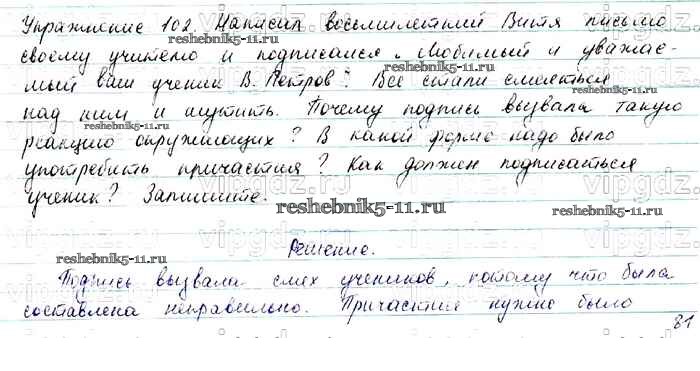 Упражнение 102. Написал восьмилетний Витя письмо
своему учителю и подписался „Любимый и уважае-
мый ваш ученик В. Петров". Все стали смеяться
над ним и шутить. Почему подпись вызвала такую
реакцию окружающих? В какой форме надо было
употребить причастия? Как должен подписаться
ученик? Запишите.
reshebnik5-11.ru
Решение.
Подпись вызвала смех учеников, потому что была
составлена неправильно. Причастие нужно было
81